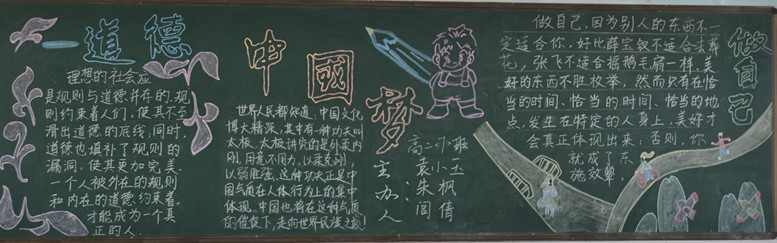 道德
理想的社会应
是规则与道德并存的.规
则约束着人们，使其不至
滑出道德的底线；同时，
道德也填补了规则的
漏洞，使其更加完美，
一个人被外在的规则
和内在的道德约束着，
才能成为一个真
正的人.
中國梦
世界人民都知道：中国文化
博大精深，其中有一种功夫叫
太极，太极讲究的是外柔内
刚，用意不用力，以柔克刚，
以弱胜强，这种功夫正是中
国气质在人体行为上的集中
体现，中国也将在这种气质
的催促下，走向世界民族之巅！
高二・小班
主办人：
袁小玉
朱枫
闾倩
做自己
做自己，因为别人的东西不一
定适合你，好比薛宝钗不适合去葬
花，张飞不适合摇鹅毛扇一样，美
好的东西不胜枚举，然而只有在恰
当的时间、恰当的时间、恰当的地
点，发生在特定的人身上，美好才
会真正体现出来；否则，你
就成了东
施效颦。